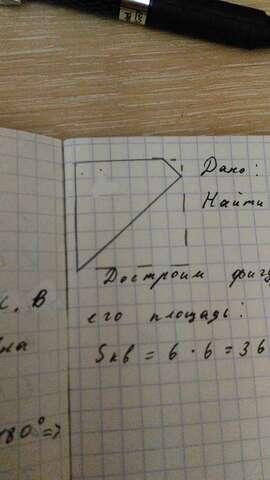 Дано:
Найти
Достроим фигу
его площадь:
Sкв = 6 · 6 = 36
В
180° =>